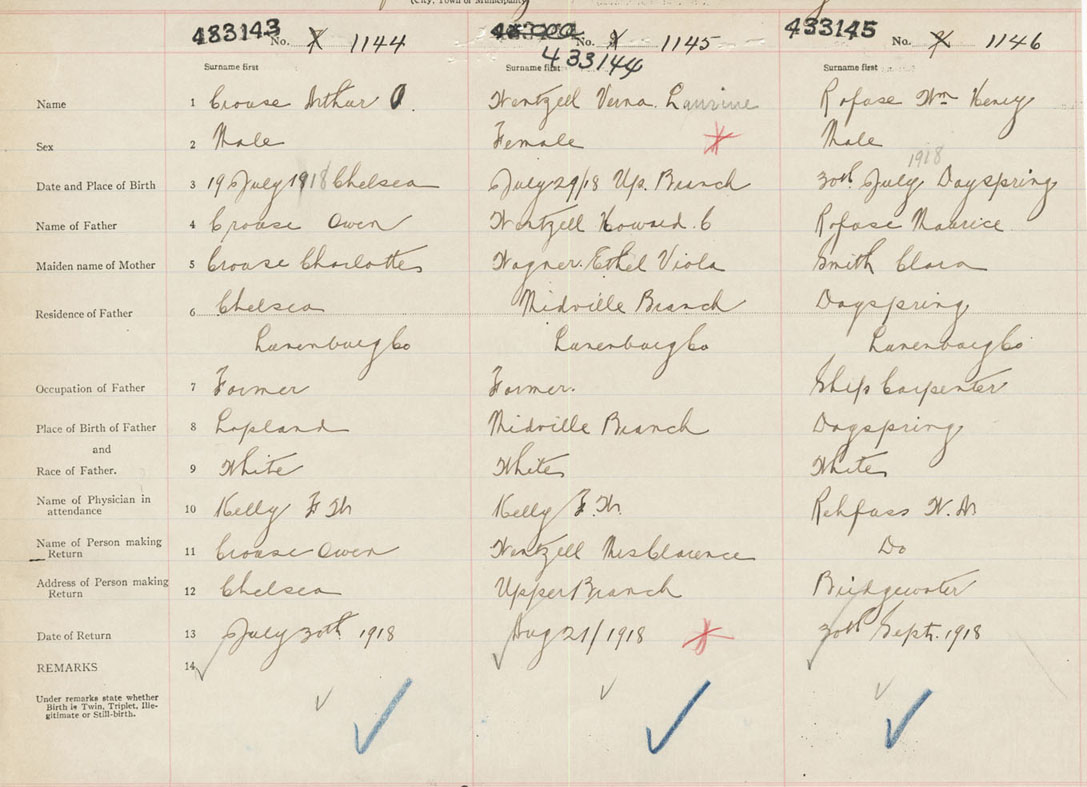 (City, Town or Municipality)
433143 No. 7 1144 No. 8 1145 433145 No. 9 1146
433144
Surname first Surname first Surname first
Name 1 Crouse Arthur O. Wentzell Verna Laurine Rofuse Wm Henry
Sex 2 Male Female Male
1918
Date and Place of Birth 3 19 July 1918 Chelsea July 29/18 Up. Branch 30th July Dayspring
Name of Father 4 Crouse Owen Wentzell Howard C Rofuse Maurice
Maiden name of Mother 5 Crouse Charlotte Wagner Ethel Viola Smith Clara
Residence of Father 6 Chelsea Midville Branch Dayspring
Lunenburg Co Lunenburg Co Lunenburg Co
Occupation of Father 7 Farmer Farmer. Ship Carpenter
Place of Birth of Father 8 Lapland Midville Branch Dayspring
and
Race of Father. 9 White White White
Name of Physician in attendance 10 Kelly F W Kelly F. W. Rehfuss W. N.
Name of Person making Return 11 Crouse Owen Wentzell Mrs Clarence Do
Address of Person making Return 12 Chelsea Upper Branch Bridgewater
Date of Return 13 July 30th 1918 Aug 21/1918 30th Sept. 1918
REMARKS 14
Under remarks state whether
Birth is Twin, Triplet, Ille-
gitimate or Still-birth.